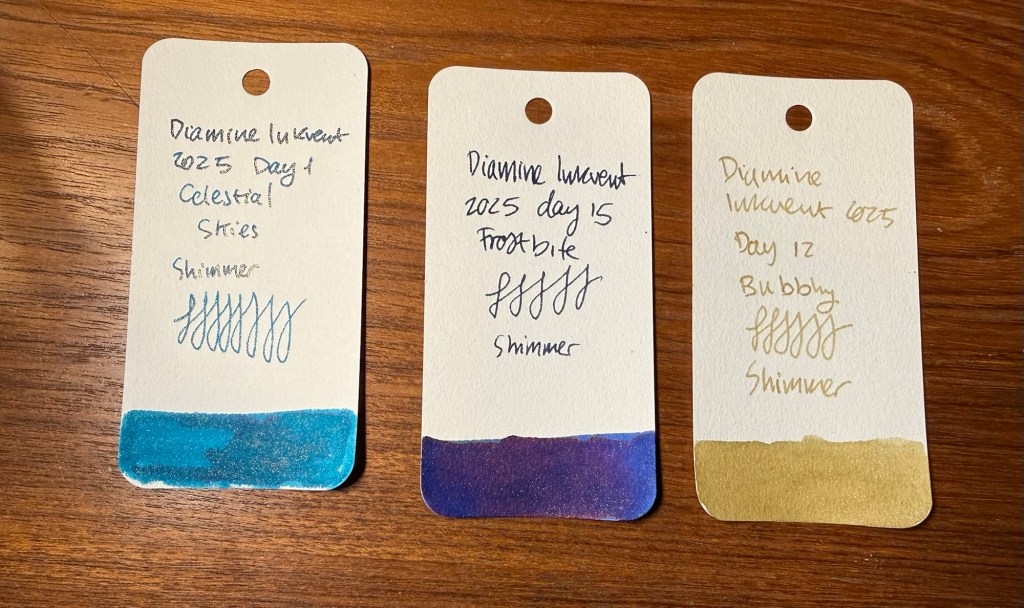 Diamine Inkvent
2025 Day 1
Celestial
Skies
Shimmer
Diamine Inkvent
2025 day 15
Frostbite
Shimmer
Diamine
Inkvent 2025
Day 12
Bubbly
Shimmer